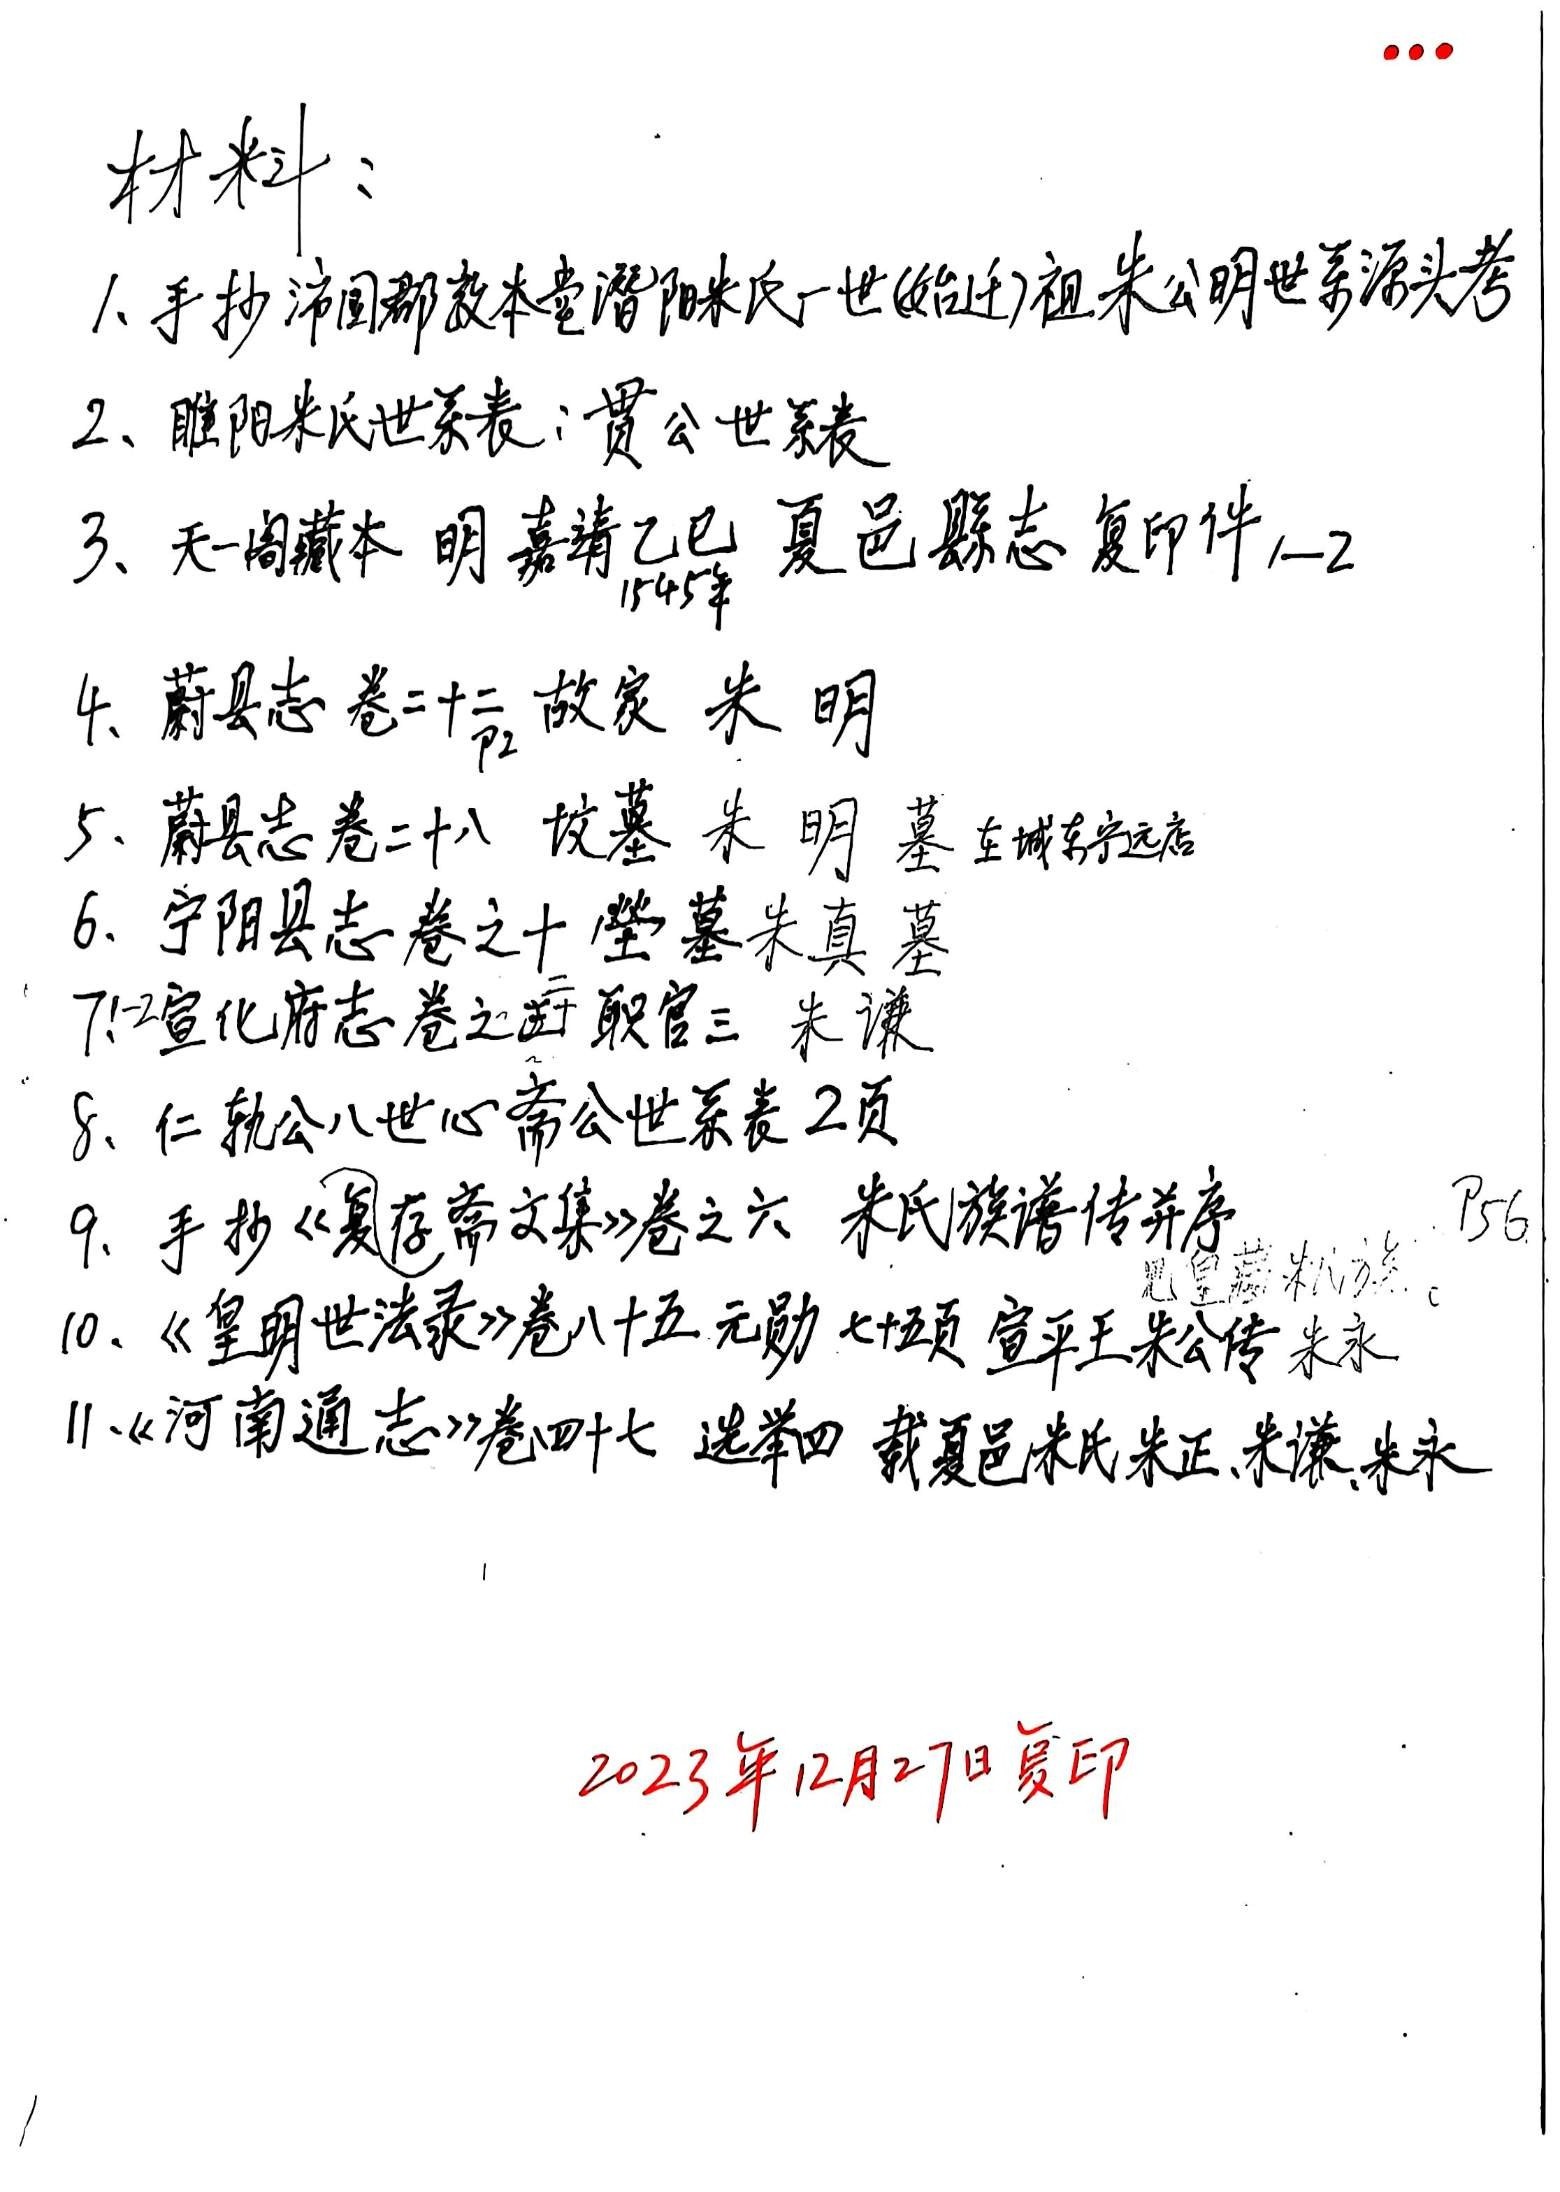 材料：
1、手抄沛国郡敦本堂潛阳朱氏一世(始迁)祖朱公明世系源头考
2、睢阳朱氏世系表：贯公世系表
3、天一阁藏本 明 嘉靖乙巳 夏邑縣志 复印件 1—2
1545年
4、蔚县志 卷二十二 故家 朱 明
P2
5、蔚县志 卷二十八 坟墓 朱 明 墓 在城东宁远店
6、宁阳县志 卷之十 塋墓 朱真墓
7、1-2 宣化府志 卷之二十 职官三 朱谦
8、仁轨公八世心斋公世系表 2页
9、手抄《复存斋文集》卷之六 朱氏族谱传并序 P56
见皇 朱氏族
10、《皇明世法录》卷八十五 元勋 七十五页 宣平王朱公传 朱永
11、《河南通志》卷四十七 选举四 载夏邑朱氏朱正、朱谦、朱永
2023年12月27日复印